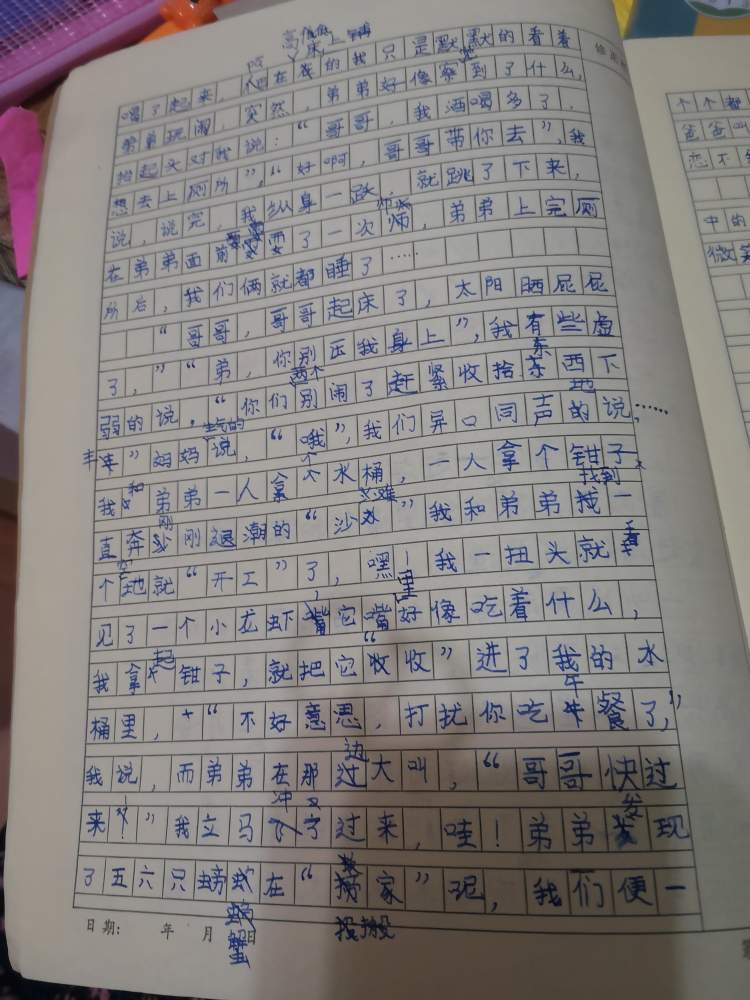 高低床上铺
喝了起来,在的我只是默默的看着
弟弟玩闹,突然,弟弟好像察到了什么,
抬起头对我说:“哥哥,我酒喝多了,
想去上厕所”,“好啊,哥哥带你去”,我
说,说完,我纵身一跃,就跳了下来,
在弟弟面前耍了一次帅,弟弟上完厕
所后,我们俩就都睡了……
“哥哥,哥哥起床了,太阳晒屁屁
了,”“弟,你别压我身上”,我有些虚
弱的说,“你们两个别闹了赶紧收拾东西下
车”妈妈生气的说,“哦”,我们异口同声地说,……
我和弟弟一人拿个水桶,一人拿个钳子,
直奔刚刚退潮的“沙滩”我和弟弟找到一
个空地就“开工”了,嘿!我一扭头就看
见了一个小龙虾,它嘴里好像吃着什么,
我拿起钳子,就把它“收收”进了我的水
桶里,“不好意思,打扰你吃午餐了,”
我说,而弟弟在那边大叫,“哥哥快过
来!”我立马冲了过来,哇!弟弟发现
了五六只螃蟹在“搬家”呢,我们便一
日期: 年 月 日
个个都
爸爸叫
恋不
中的
微笑